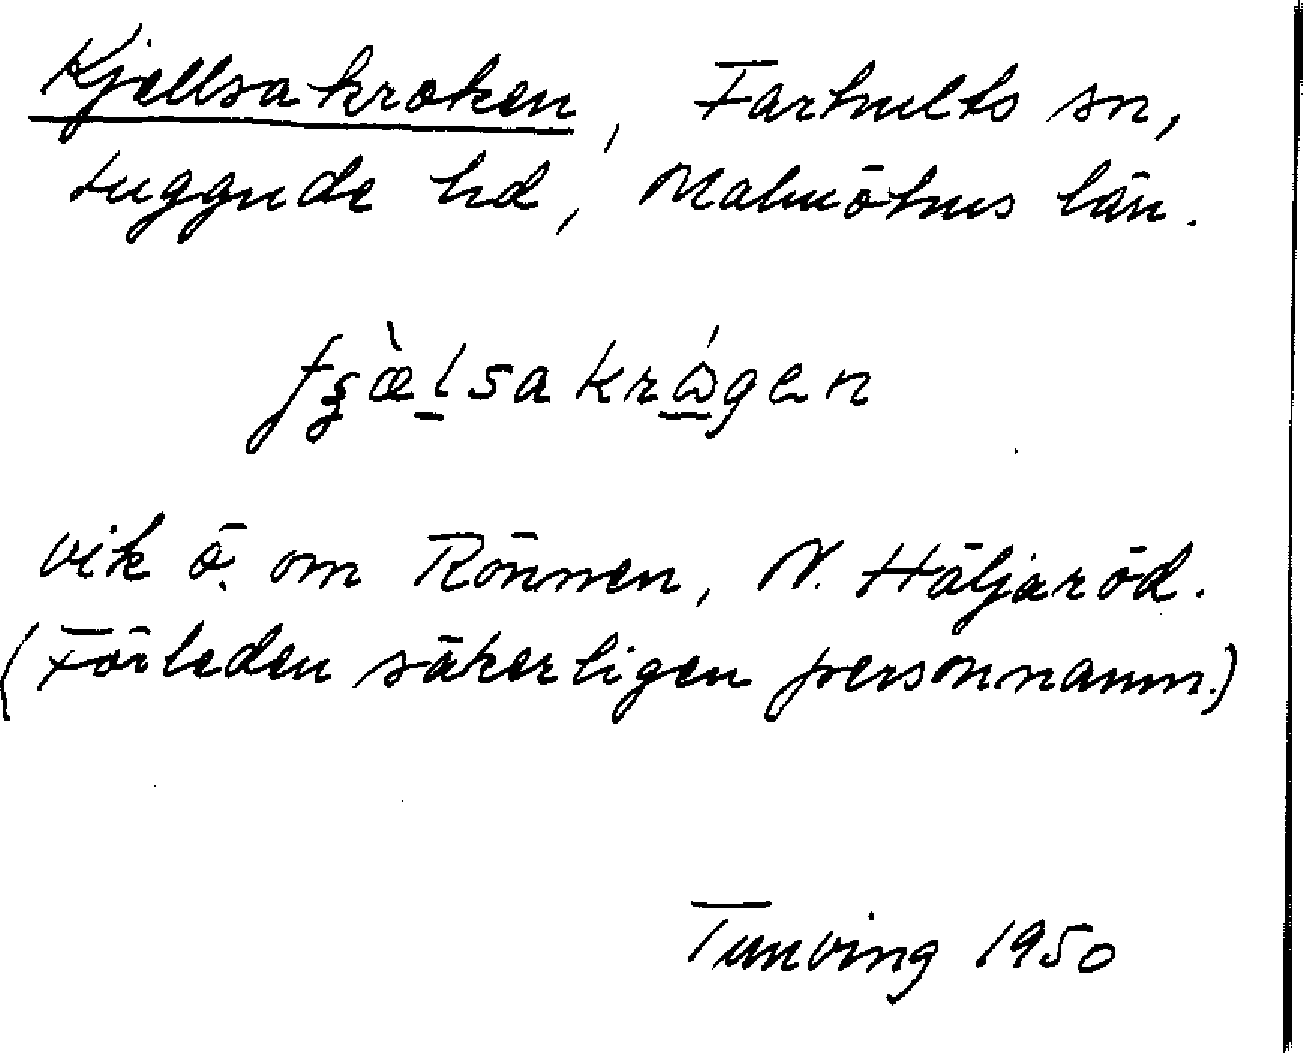 Kjellsakroken, Farhults sn,
Luggude hd, Malmöhus län.
vik ö. om Rönnen, N. Häljaröd.
(Förleden säkerligen personnamn.)
Tunving 1950